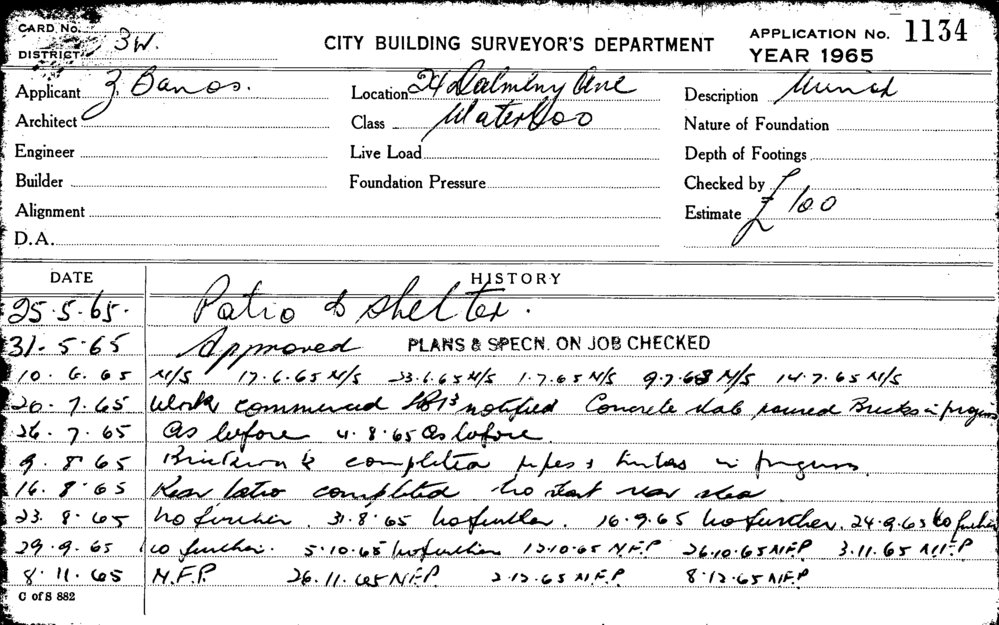 CARD NO.
DISTRICT 3W.
CITY BUILDING SURVEYOR'S DEPARTMENT
APPLICATION No. 1134
YEAR 1965
Applicant Z Banos.
Location 24 Dalmeny Ave
Description
Architect
Class Waterloo
Nature of Foundation
Engineer
Live Load
Depth of Footings
Builder
Foundation Pressure
Checked by
Alignment
Estimate £100
D.A.
DATE HISTORY
25.5.65. Patio & shelter.
31.5.65 Approved PLANS & SPECN. ON JOB CHECKED
10.6.65 N/S 17.6.65 N/S 23.6.65 N/S 1.7.65 N/S 9.7.65 N/S 14.7.65 N/S
20.7.65 Work commenced notified Concrete slab poured Bricks in progress
26.7.65 As before 4.8.65 As before.
9.8.65 Brickwork completed pipes & in progress
16.8.65 Rear Patio completed no start rear
23.8.65 no further. 31.8.65 no further. 16.9.65 no further. 24.9.65 no further
29.9.65 no further. 5.10.65 no further 12.10.65 N.F.P 26.10.65 N.F.P 3.11.65 N.F.P
8.11.65 N.F.P. 26.11.65 N.F.P 2.12.65 N.F.P. 8.12.65 N.F.P
C of S 882